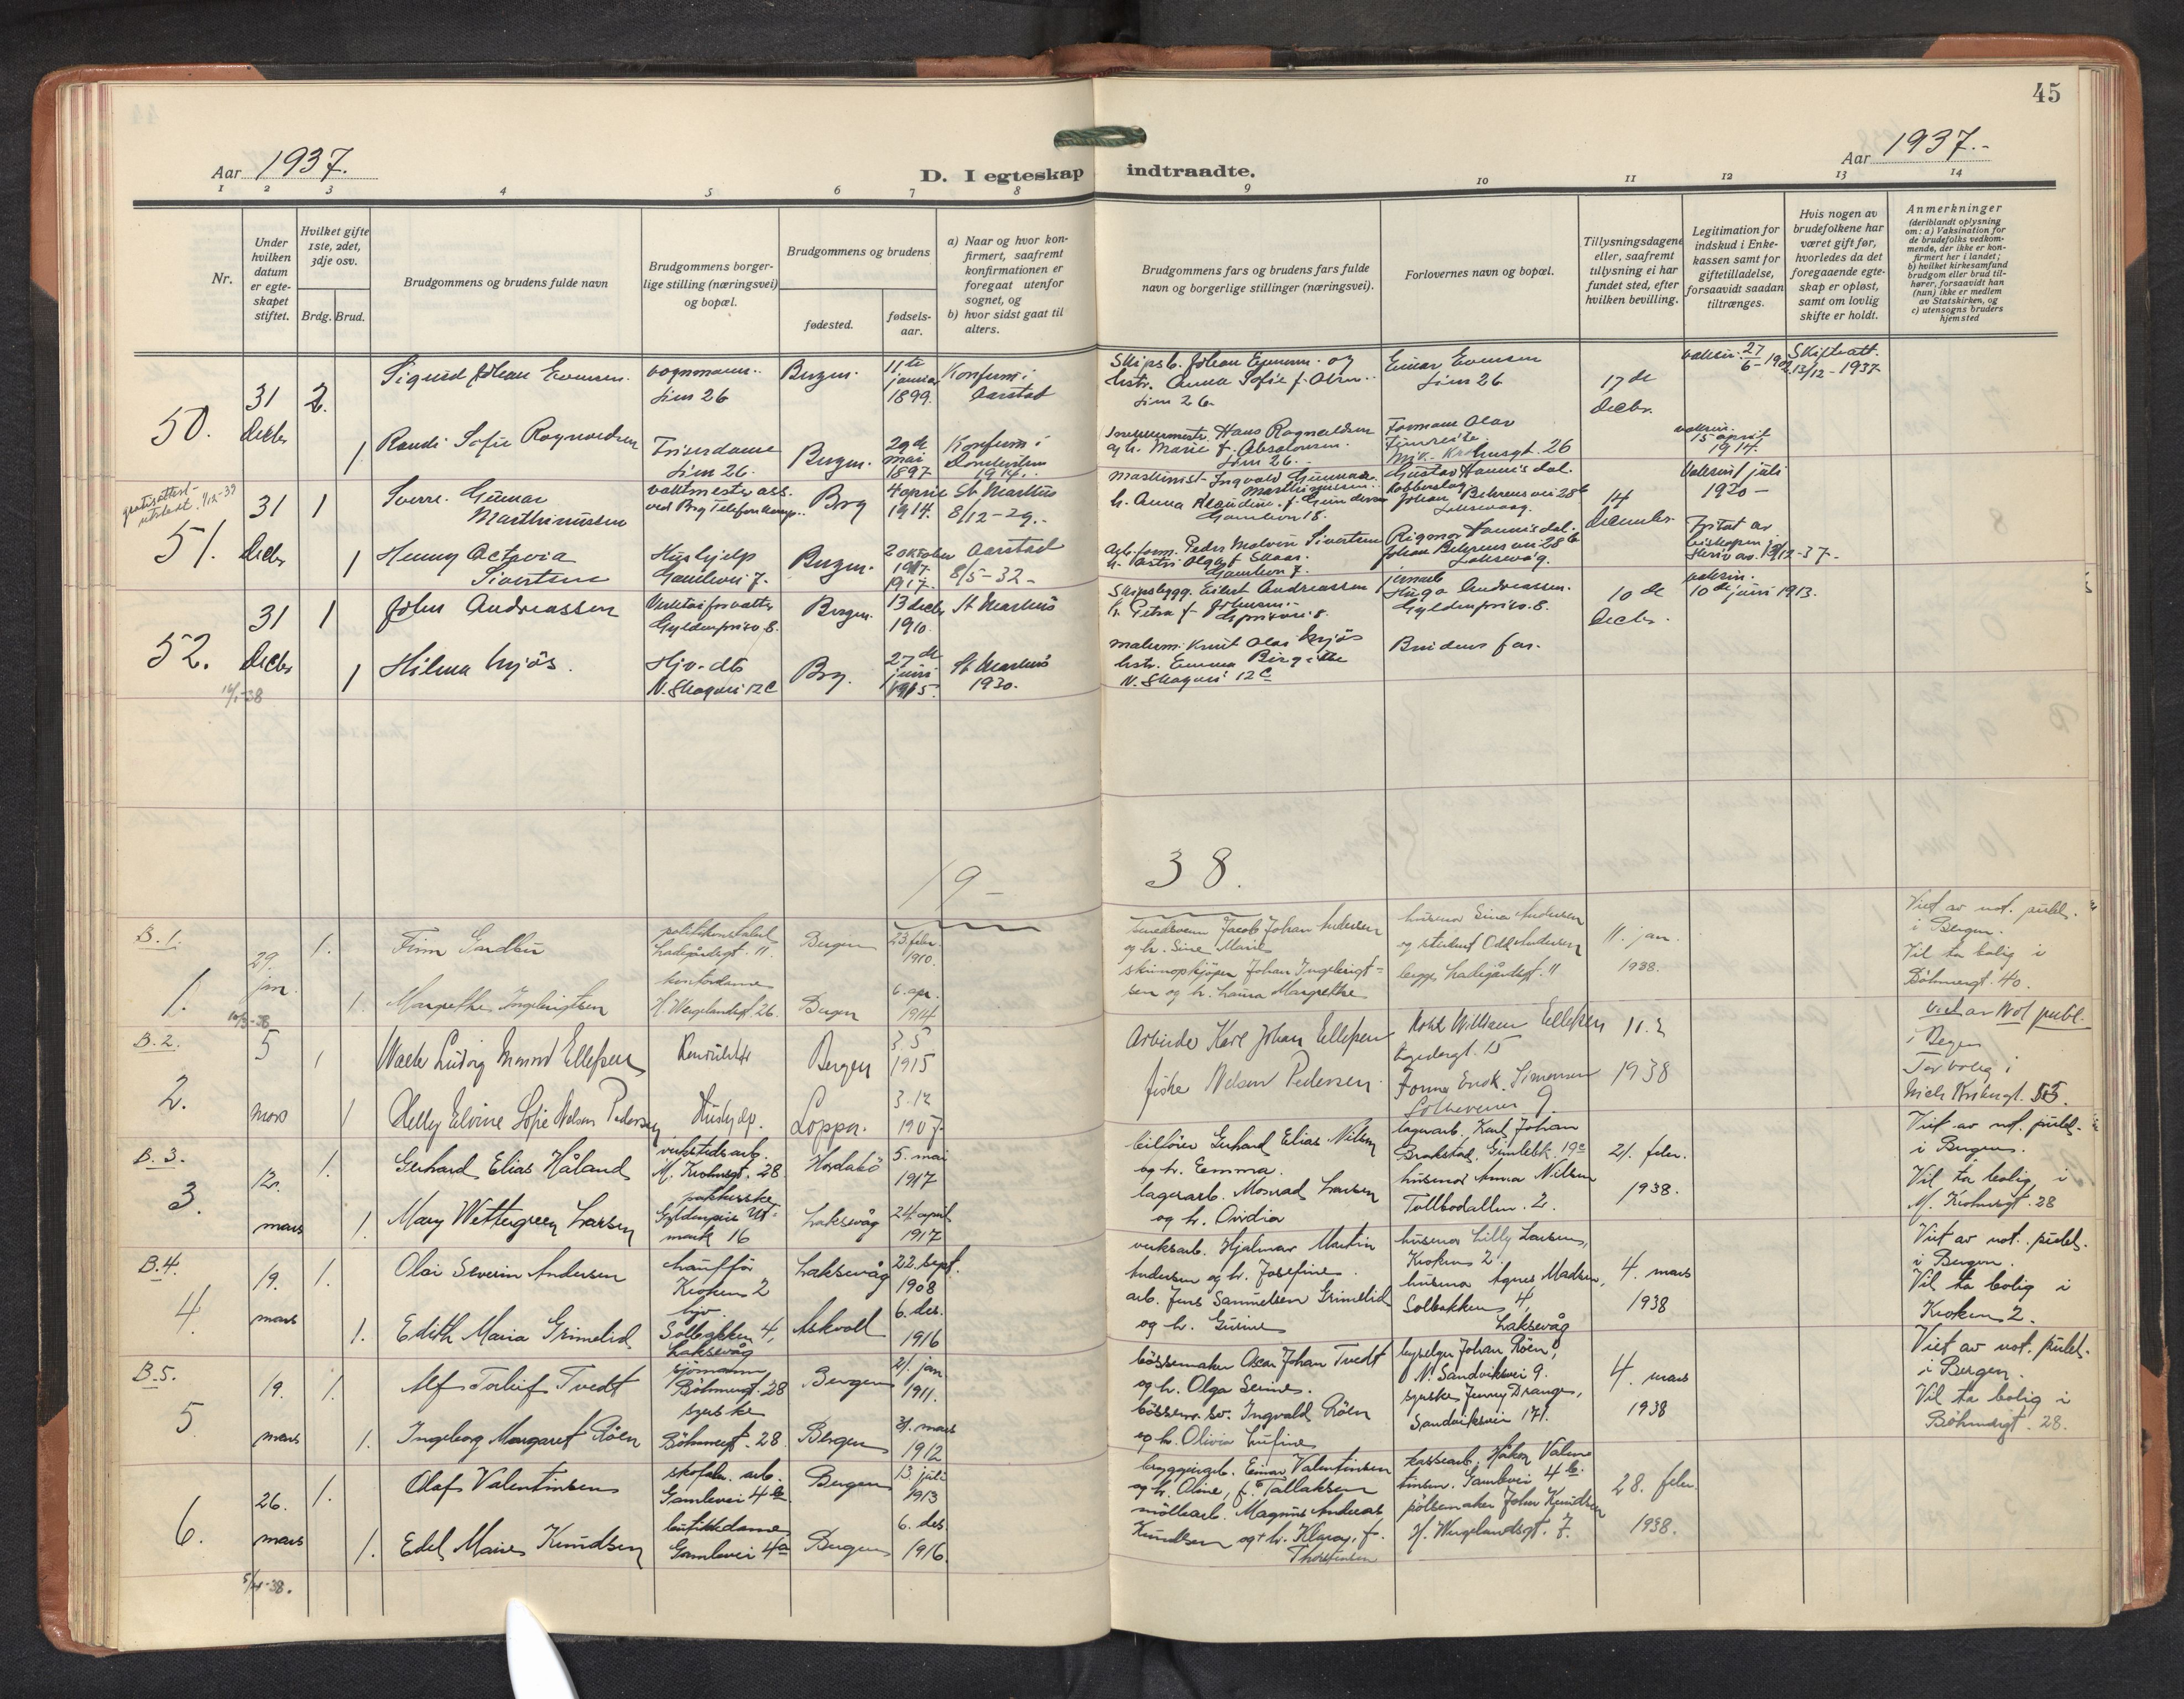 45
Aar 1937.
D. I egteskap indtraadte.
Aar 1937.-
1 2 3 4 5 6 7 8 9 10 11 12 13 14
Nr.
Under hvilken datum er egteskapet stiftet.
Hvilket gifte 1ste, 2det, 3dje osv.
Brdg. Brud.
Brudgommens og brudens fulde navn
Brudgommens borgerlige stilling (næringsvei) og bopæl.
Brudgommens og brudens
fødested.
fødselsaar.
a) Naar og hvor konfirmert, saafremt konfirmationen er foregaat utenfor sognet, og
b) hvor sidst gaat til alters.
Brudgommens fars og brudens fars fulde navn og borgerlige stillinger (næringsvei).
Forlovernes navn og bopæl.
Tillysningsdagene eller, saafremt tillysning ei har fundet sted, efter hvilken bevilling.
Legitimation for indskud i Enkekassen samt for giftetilladelse, forsaavidt saadan tiltrænges.
Hvis nogen av brudefolkene har været gift før, hvorledes da det foregaaende egteskap er opløst, samt om lovlig skifte er holdt.
Anmerkninger
(deriblandt oplysning om: a) Vaksination for de brudefolks vedkommende, der ikke er konfirmert her i landet; b) hvilket kirkesamfund brudgom eller brud tilhører, forsaavidt han (hun) ikke er medlem av Statskirken, og c) utensogns bruders hjemsted
50.
31 Decbr
2.
Sigurd Johan Evensen.
vognmann.
26
Bergen.
11te januar 1899.
Konfirm i Aarstad
Skipsb. Johan Evensen. og
hstr. Anna Sofie f. Olsen.
26.
Einar Evensen
26
17 de Decbr.
vaksin. 27/6-1902
Skifteatt. 13/12-1937
1
Randi Sofie Ragnvaldsen
Frisørdame
26.
Bergen.
29de mai 1897
Konfirm i
1914.
Hans Ragnvaldsen
og h. Marie f. Absalonsen.
26.
Formann Olav
26
vaksin. 15 april 1914.
51.
31 Decbr
1
Sverre. Gunnar Marthinussen
vaktmester ass.
ved Brg Telefonkomp..
Brg
4 april 1914.
St Markus 8/12-29.-
Maskinist Ingvald Gunnar Marthinussen.
h. Anna Klaudine f. Gundersen
Gamlevn 18.
Gustav Hannisdal.
Johan Behrens vei 28b
Laksevaag.
14 Decembr.
Vaksin juli 1920-
1
Henny Octavia Sivertsen
Hushjelp
Gamlevei 7.
Bergen.
2 oktober 1917
1917.
Aarstad 8/5-32-
Arb. form. Peder Malvin Sivertsen
h. Astri Olga f. Skaar.
Gamlevn 7.
Rigmor Hannisdal.
Johan Behrens vei 28b
Laksevåg.
Fritat av biskopen i skriv av. 13/12-37-
52.
31 Decbr
1
John Andreassen
Verktøiforvalter
Gyldenpriso 8.
Bergen.
13 decbr 1910.
St Markus
Skipsbygg. Eilert Andreassen
h. Petra f. Johansen.-
Hugo Andreassen.
Gyldenpriso. 8.
10 de Decbr.
vaksin. 10de juni 1913.
1
Hilma Mjøs.
Hjv. dtr
N. Skogvei 12c
Brg.
27de juni 1915.
St Markus 1930.
Knut Olai Mjøs
hstr. Emma Birgitte
N. Skogvei 12c
Brudens far.
19- 38.
B.1.
1.
29. jan.
1.
Finn Sandbu
politikonstabel
Ladegårdsgt. 11.
Bergen
23. febr. 1910.
Smedsvenn Jacob Johan Andersen
og h. Sine Marie
husmor Sina Andersen
og student Odd Andersen
begge Ladegårdsgt. 11
11. jan. 1938.
Viet av not. publ.
i Bergen.
Vil ta bolig i
Böhmergt. 40.
1.
Margrethe Ingebrigtsen
kontordame
H. Wergelandsgt. 26.
Bergen
6. apr. 1914
skinnopkjøper Johan Ingebrigtsen
og h. Laura Margrethe
B.2.
2.
5 mars
1
Ludvig Ellefsen
Bergen
3.5 1915
Arbeider Karl Johan Ellefsen
William Ellefsen
11.2 1938
Viet av Not publ.
i Bergen
Tar bolig i
1
Nelly Elvine Sofie Nelsen Pedersen
Hushjelp.
Loppa.
3.12 1907
fisker Nelson Pedersen.
Simonsen
9.
B.3.
3.
12. mars
1.
Gerhard Elias Håland
verkstedsarb.
M. Krohnsgt. 28
Hordabø
5. mai 1917
Gerhard Elias Nilsen
og h. Emma.
lagerarb. Karl Johan
Brakstad. Gimlebk. 19c
21. febr. 1938.
Viet av not. publ.
i Bergen.
Vil ta bolig i
M. Krohnsgt. 28
1.
Mary Wettergreen Larsen
pakkerske
Gyldenpris Utmark 16
Laksevåg
24. april 1917
lagerarb. Monrad Larsen
og h. Ovidia
husmor Anna Nilsen
Tollbodallm. 2.
B.4.
4.
19. mars
1.
Olai Severin Andersen
chauffør
Kroken 2
Laksevåg
22. sept. 1908
verksarb. Hjalmar Martin
Andersen og h. Josefine.
husmor Lilly Larsen,
Kroken 2.
4. mars 1938
Viet av not. publ.
i Bergen.
Vil ta bolig i
Kroken 2.
1.
Edith Maria Grimelid
hjv.
Solbakken 4,
Laksevåg
Askvoll
6. des. 1916
arb. Jens Samuelsen Grimelid
og h. Gurine
husmor Agnes Madsen,
Solbakken 4,
Laksevåg
B.5.
5
19. mars
1.
Alf Torleif Tvedt
sjømann
Böhmergt. 28
Bergen
21. jan 1911.
bøssemaker Oscar Johan Tvedt
og h. Olga Serine.
Johan Röen,
N. Sandviksvei 9.
4. mars 1938
Viet av not. publ.
i Bergen.
Vil ta bolig i
Böhmergt. 28.
1.
Ingeborg Margaret Röen
syerske
Böhmergt. 28
Bergen
31. mars 1912
Ingvald Röen
og h. Olivia
syerske Jenny Drange,
Sandviksvei 171.
6.
26. mars
1.
Olaf Valentinsen
skofabr. arb.
Gamlevei 4b
Bergen
13. juli 1913
bryggeriarb. Einar Valentinsen
og h. Oline, f. Tallaksen
Håkon Valentinsen. Gamlevei 4b.
28. febr. 1938.
1.
Edel Marie Knudsen
butikkdame
Gamlevei 4a
Bergen
6. des 1916.
møllearb. Magnus Andreas
Knudsen og h. Klara, f.
Thorsteinsen
pølsemaker John Knudsen
H. Wergelandsgt. 7.
5/4-38.